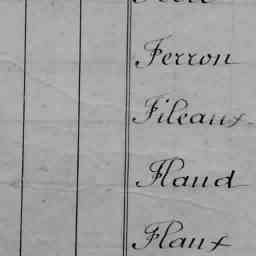 Ferron
Fileaux
Flaud
Flaux